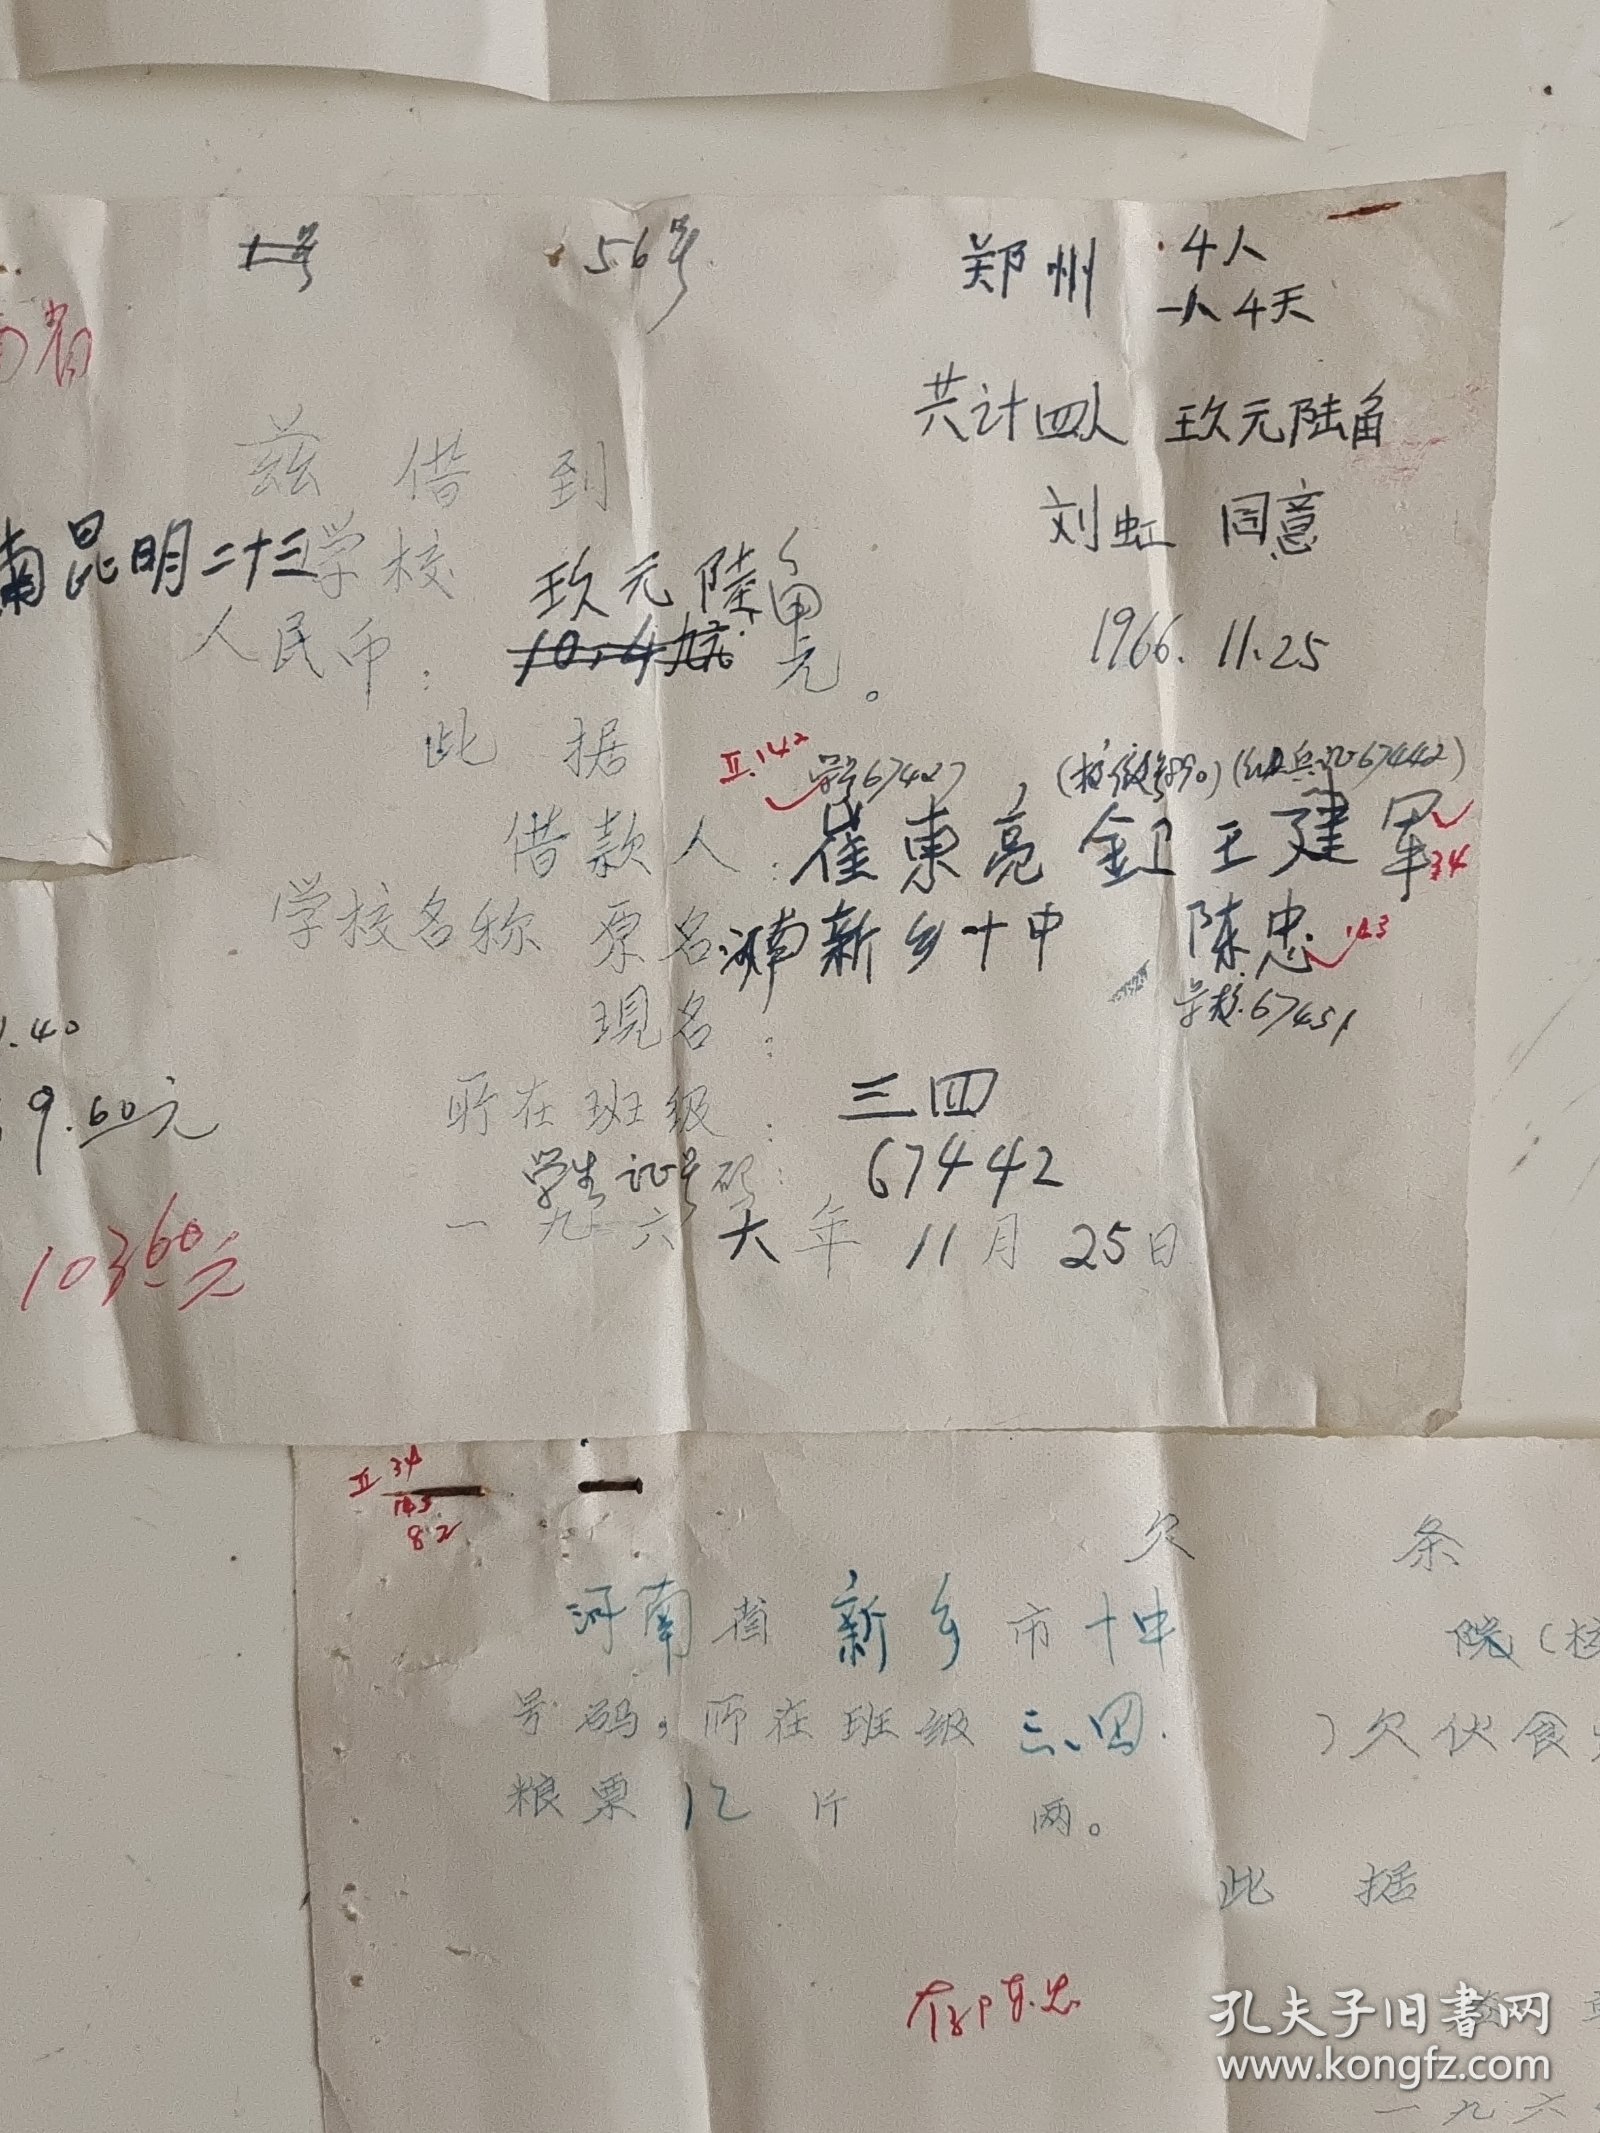 1号 56号. 郑州 4人
一人4天
南省
共计四人 玖元陆角
兹借到
刘虹 同意
南昆明二十三学校 玖元陸角
人民币: 10.4 元。
1966.11.25
此据
II.142 67427 (红卫兵证67442)
借款人:崔東亮 王建军 34
学校名称 原名:河南新乡十中 陈忠 143
67451
現名:
.40
所在班级: 三四
9.60元
学生证号码: 67442
一九六六年 11月25日
10360元
II 34
143
82
欠 条
河南省新乡市十中 院(校
号码,所在班级三、四. )欠伙食
粮票12斤 两。
此 据
孔夫子旧书网
www.kongfz.com
一九六